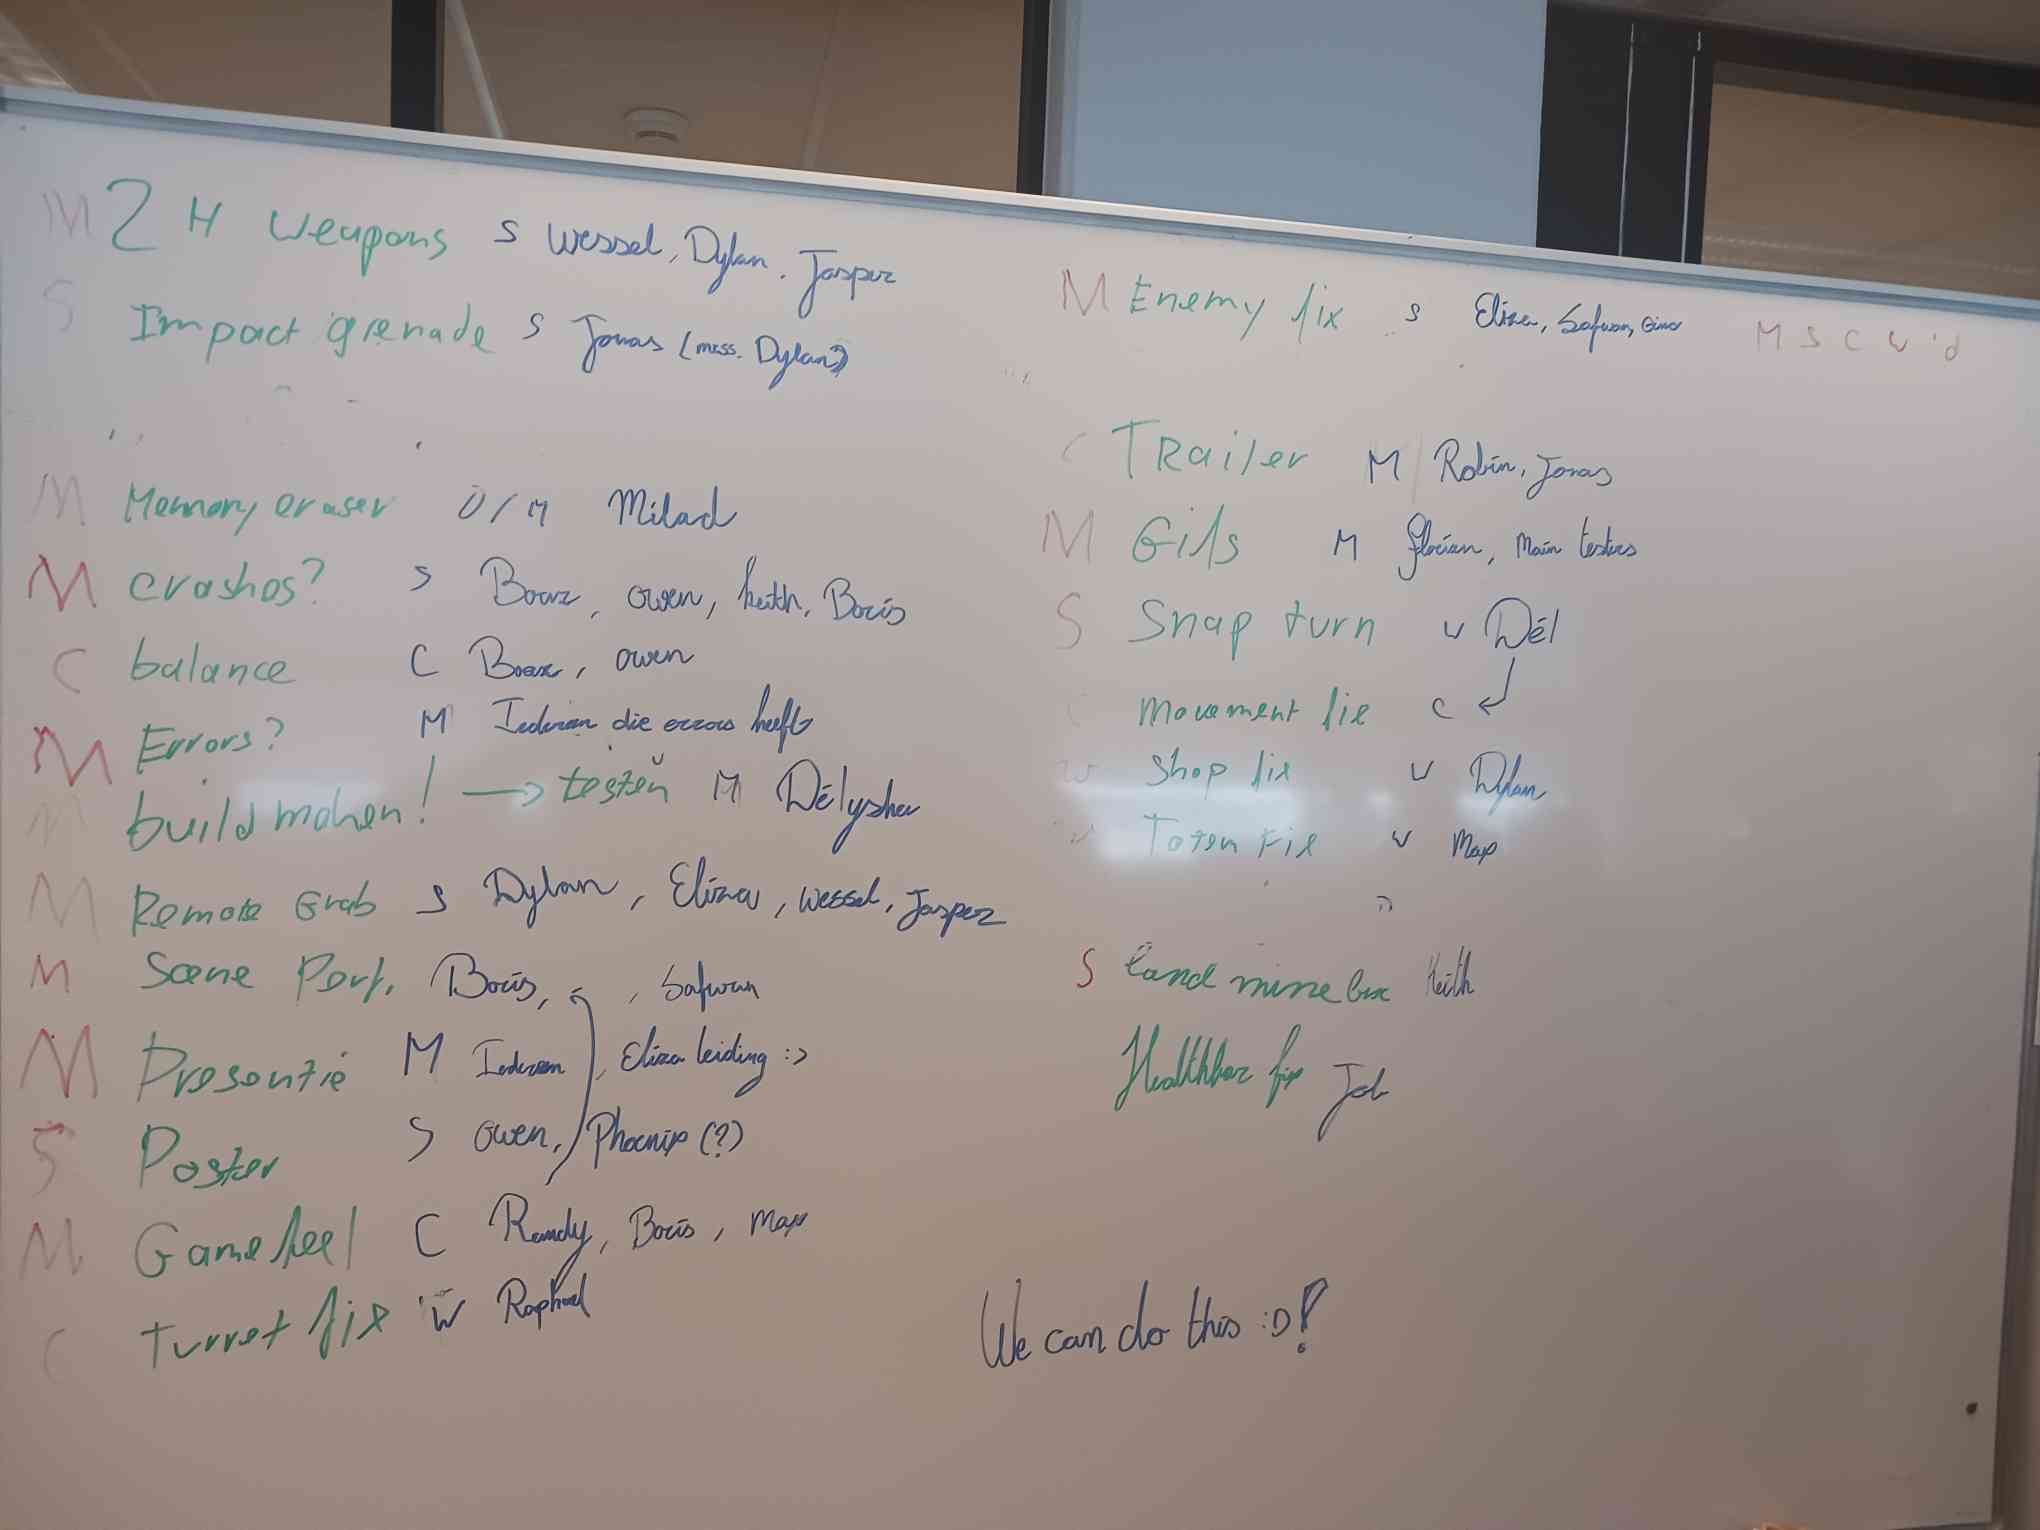 M 2 H weapons S Wessel, Dylan, Jasper
S Impact grenade S Jonas (miss. Dylan?)
M Memory eraser O/M Milad
M crashes? S Boaz, Owen, Keith, Boris
C balance C Boaz, Owen
M Errors? M Iedereen die errors heeft
M build maken! → testen M Délysha
M Remote Grab S Dylan, Eliza, Wessel, Jasper
M Scene Perf. Boris, , Safwan
M Presentie M Iedereen, Eliza leiding :>
S Poster S Owen, Phoenix (?)
M Game feel C Randy, Boris, Max
C Turret fix W Raphael
M Enemy fix S Eliza, Safwan,
M S C W'd
C Trailer M Robin, Jonas
M Gifs M Florian, Main testers
S Snap turn W Dél
C Movement fix C ←
W Shop fix W Dylan
W fix W Max
S Land mine Keith
Healthbar fix Job
We can do this :D!